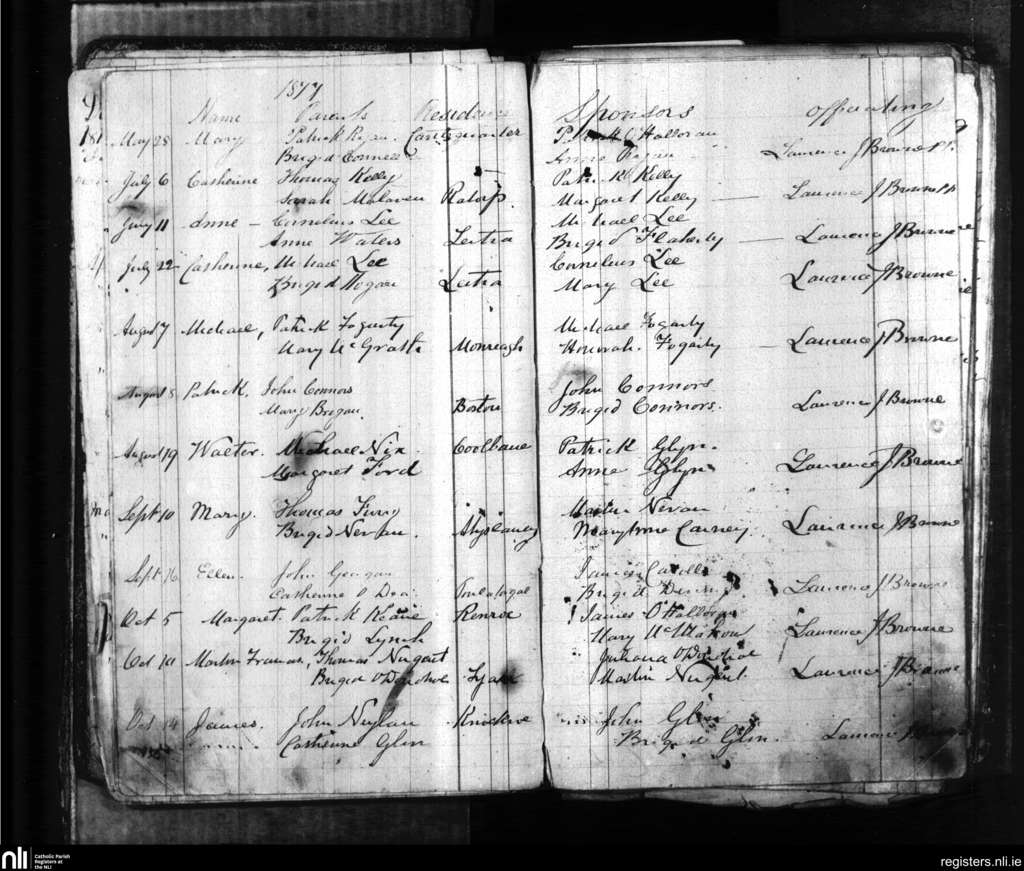 1877
Name Parents Residence Sponsors officiating
May 28 Mary Patrick Ryan Cartsquarter P O'Halloran
Brigid Connell Anne Regan Laurence J Browne P.P.
July 6 Catherine Thomas Kelly Patrick Kelly
Sarah Ratorp. Margaret Kelly — Laurence J Browne P.P.
July 11 Anne — Cornelius Lee Michael Lee
Anne Waters Leitra Brigid Flaherty — Laurence J Browne
July 22 Catherine, Michael Lee Cornelius Lee
Brigid Hogan Leitra Mary Lee Laurence J Browne
August 7 Michael, Patrick Fogarty Michael Fogarty
Mary McGrath Monreagh Honorah Fogarty — Laurence J Browne
August 8 Patrick, John Connors John Connors
Mary Brogan. Boston Brigid Connors. Laurence J Browne
August 19 Walter. Michael Nix Coolbane Patrick Glyn.
Margaret Ford Anne Glyn Laurence J Browne
Sept 10 Mary. Thomas Furey Martin Nevan
Brigid Nevan. Carney. Laurence J Browne
Sept 16 Ellen. John Geogan James
Catherine O Dea Brigid Laurence J. Browne
Oct 5 Margaret. Patrick Keane Renroe James O'Halloran
Brigid Lynch Mary McMahon Laurence J Browne
Oct Martin Francis, Thomas Nugent Juliana O'Donohoe
Brigid O'Donohoe Martin Nugent. Laurence J. Browne
Oct 14 James. John Neylan John Glin
Catherine Glin Brigid Glin. Laurence J Browne
nli Catholic Parish
Registers at
the NLI
registers.nli.ie